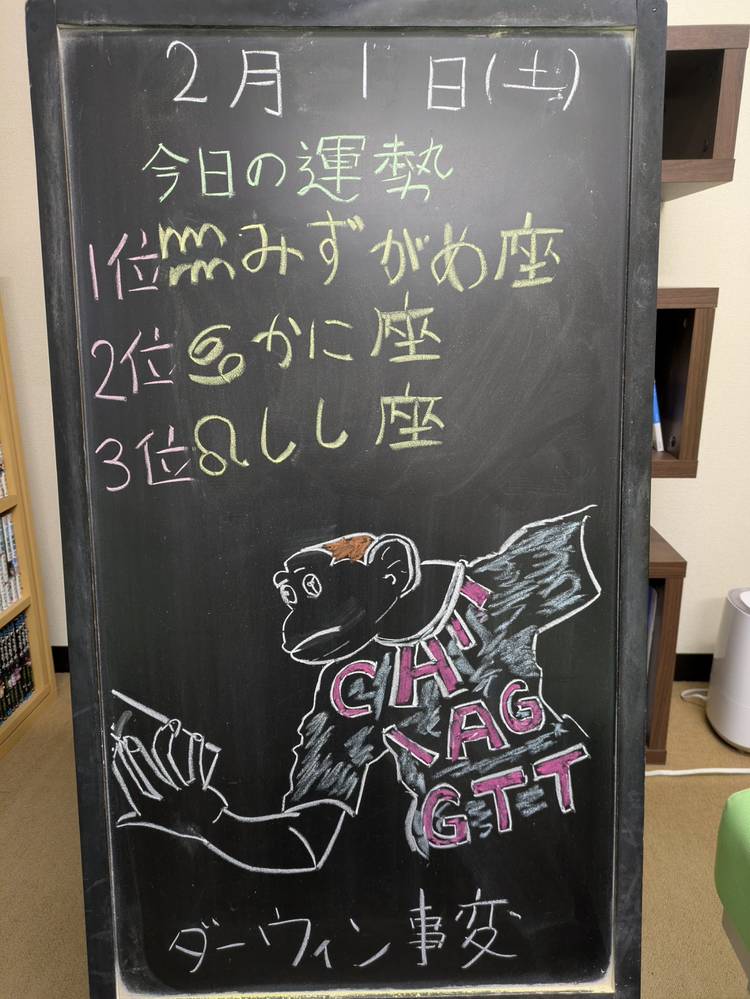 2月1日(土)
今日の運勢
1位♒みずがめ座
2位♋かに座
3位♌しし座
CH
AG
GTT
ダーウィン事変